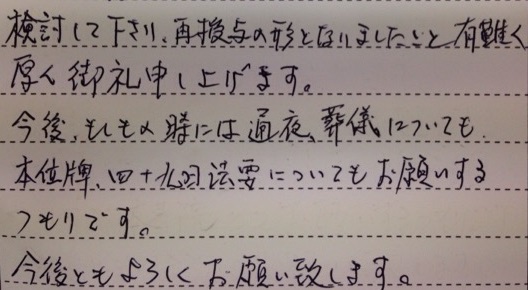 検討して下さり、再授与の形となりましたこと、有難く
厚く御礼申し上げます。
今後、もしもの時には通夜、葬儀についても、
本位牌、四十九日法要についてもお願いする
つもりです。
今後ともよろしくお願い致します。